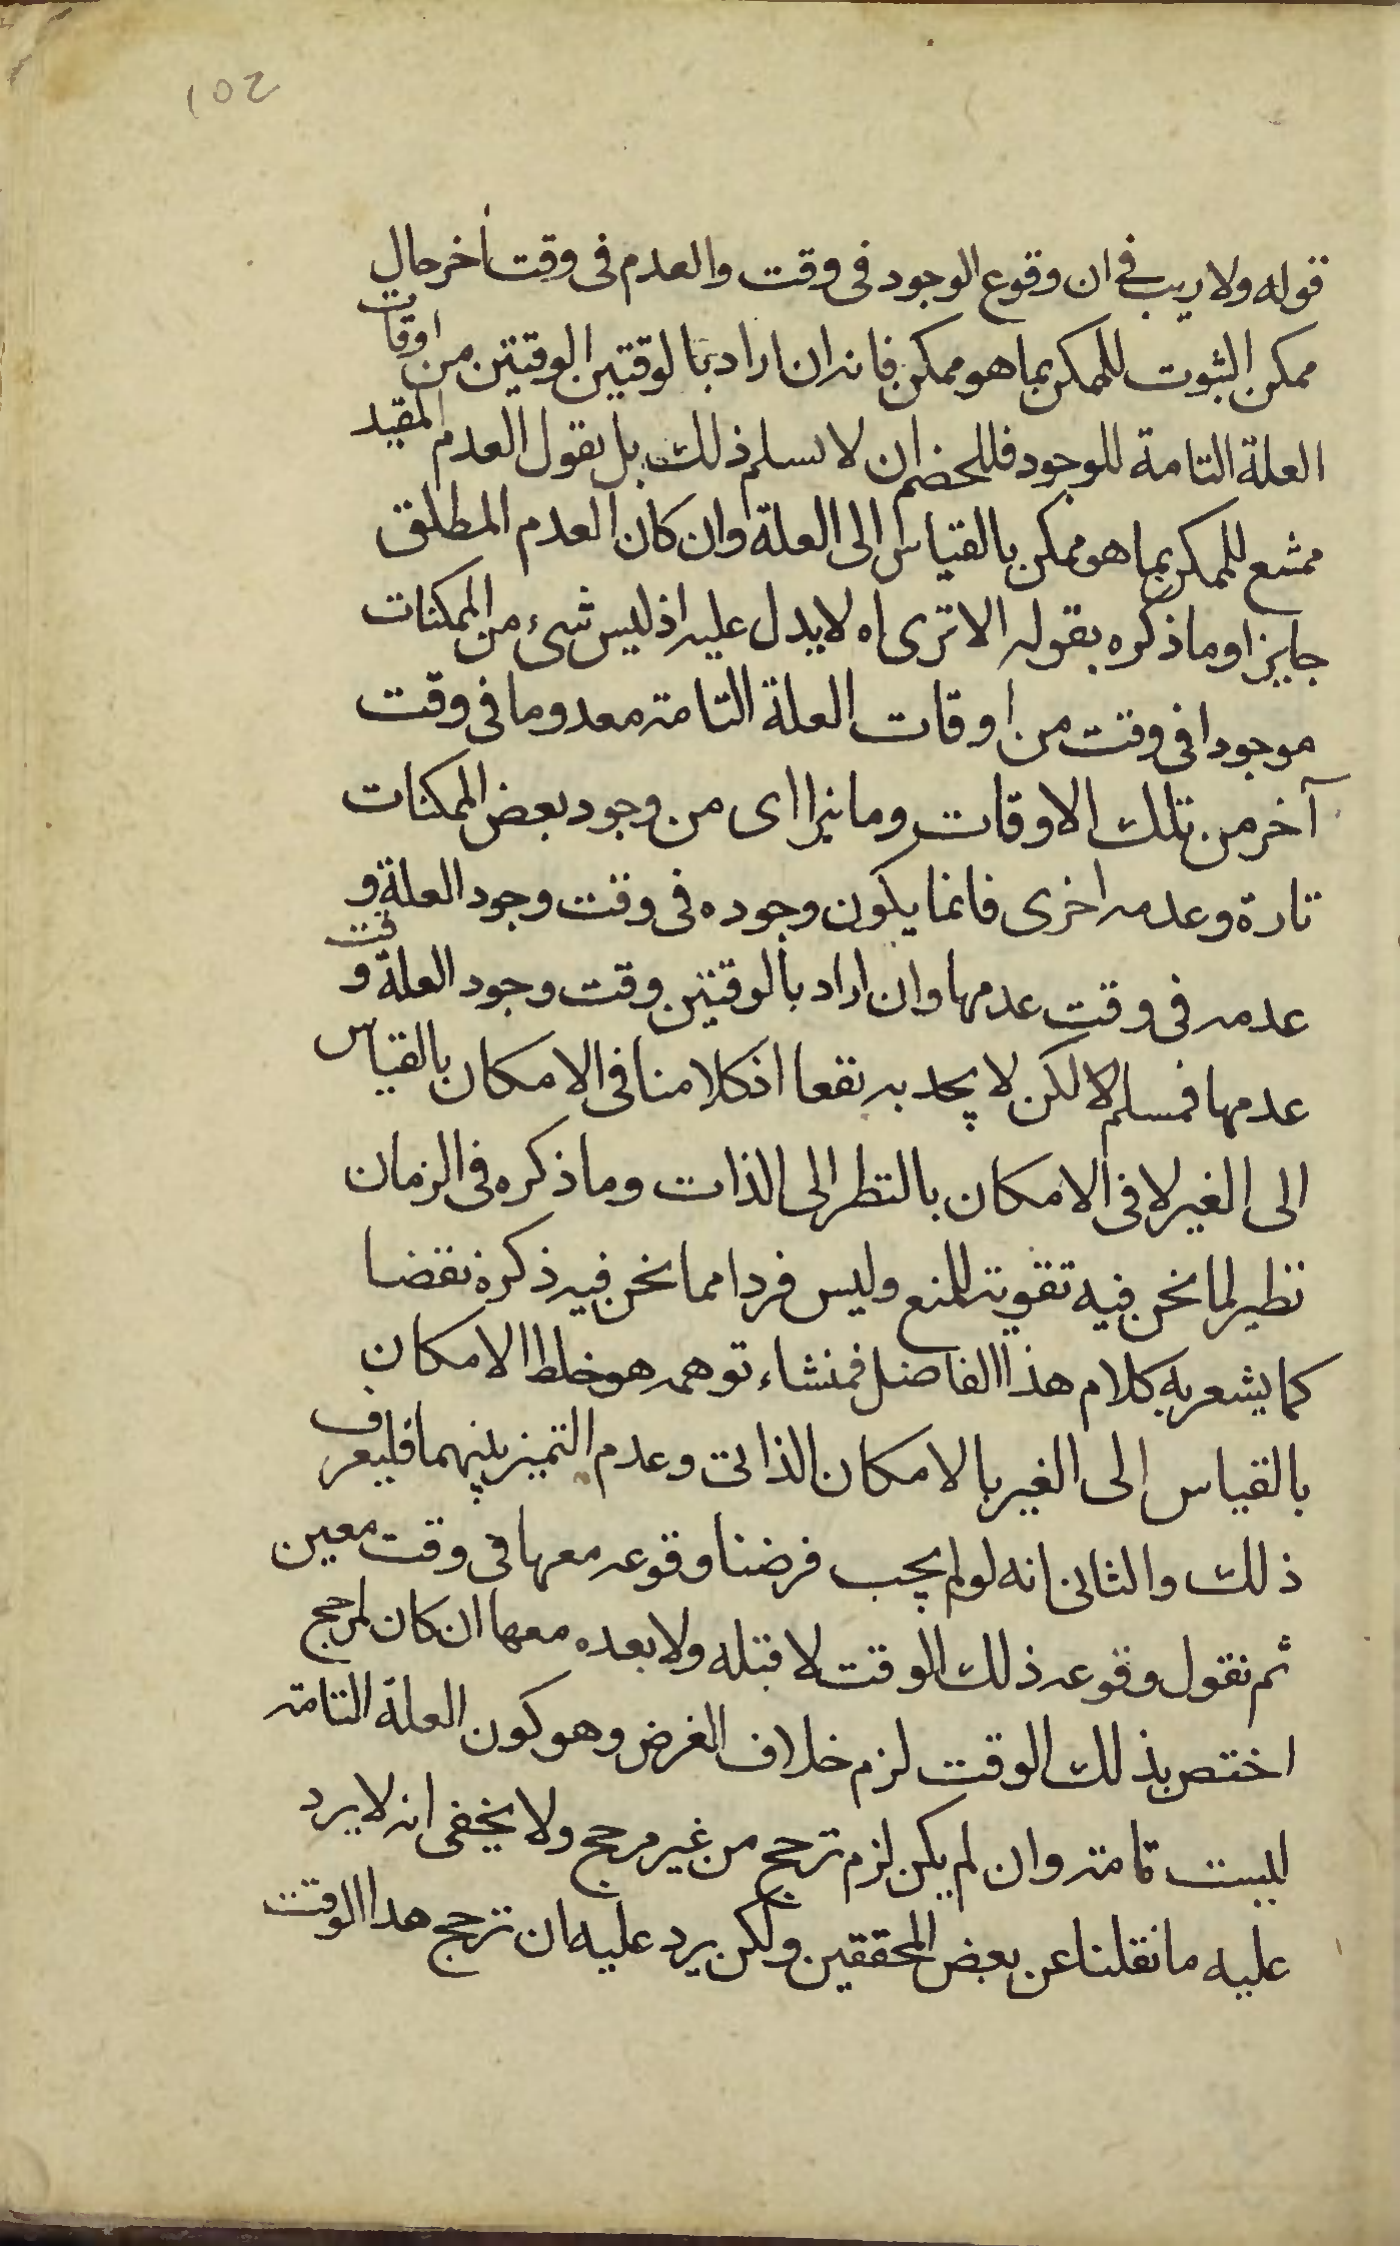 102
قوله ولا ريب فى ان وقوع الوجود فى وقت والعدم فى وقت أخر حال
ممكن الثبوت للممكن بما هو ممكن فانه ان اراد بالوقتين الوقتين من اوقات
العلة التامة للوجود فللخصم ان لا يسلم ذلك بل يقول العدم المقيد
ممتنع للممكن بما هو ممكن بالقياس الى العلة وان كان العدم المطلق
جايزا وما ذكره بقوله الا ترى اه لا يدل عليه اذ ليس شىء من الممكنات
موجودا فى وقت من اوقات العلة التامة معدوما فى وقت
آخر من تلك الاوقات وما نيرااى من وجود بعض الممكنات
تارة وعدمه اخرى فانما يكون وجوده فى وقت وجود العلة و
عدمه فى وقت عدمها وان اراد بالوقتين وقت وجود العلة وقت
عدمها فمسلم لا لكن لا يجد به نفعا اذ كلامنا فى الامكان بالقياس
الى الغير لا فى الامكان بالنظر الى الذات وما ذكره فى الزمان
نظير لما نحن فيه تقوية للمنع وليس فردا مما نحن فيه ذكرة نقضا
كما يشعر به كلام هذا الفاضل فمنشاء توهمه هو خلط الامكان
بالقياس الى الغير بالامكان الذاتى وعدم التميز بينهما فليعرف
ذلك والثانى انه لو لم يجب فرضنا وقوعه معها فى وقت معين
ثم نقول وقوعه ذلك الوقت لا قبله ولا بعده معها ان كان لمرجح
اختص بذلك الوقت لزم خلاف الفرض وهو كون العلة التامة
ليست تامة وان لم يكن لزم ترجح من غير مرجح ولا يخفى انه لا يرد
عليه ما نقلنا عن بعض المحققين ولكن يرد عليه ان ترجح هذا الوقت